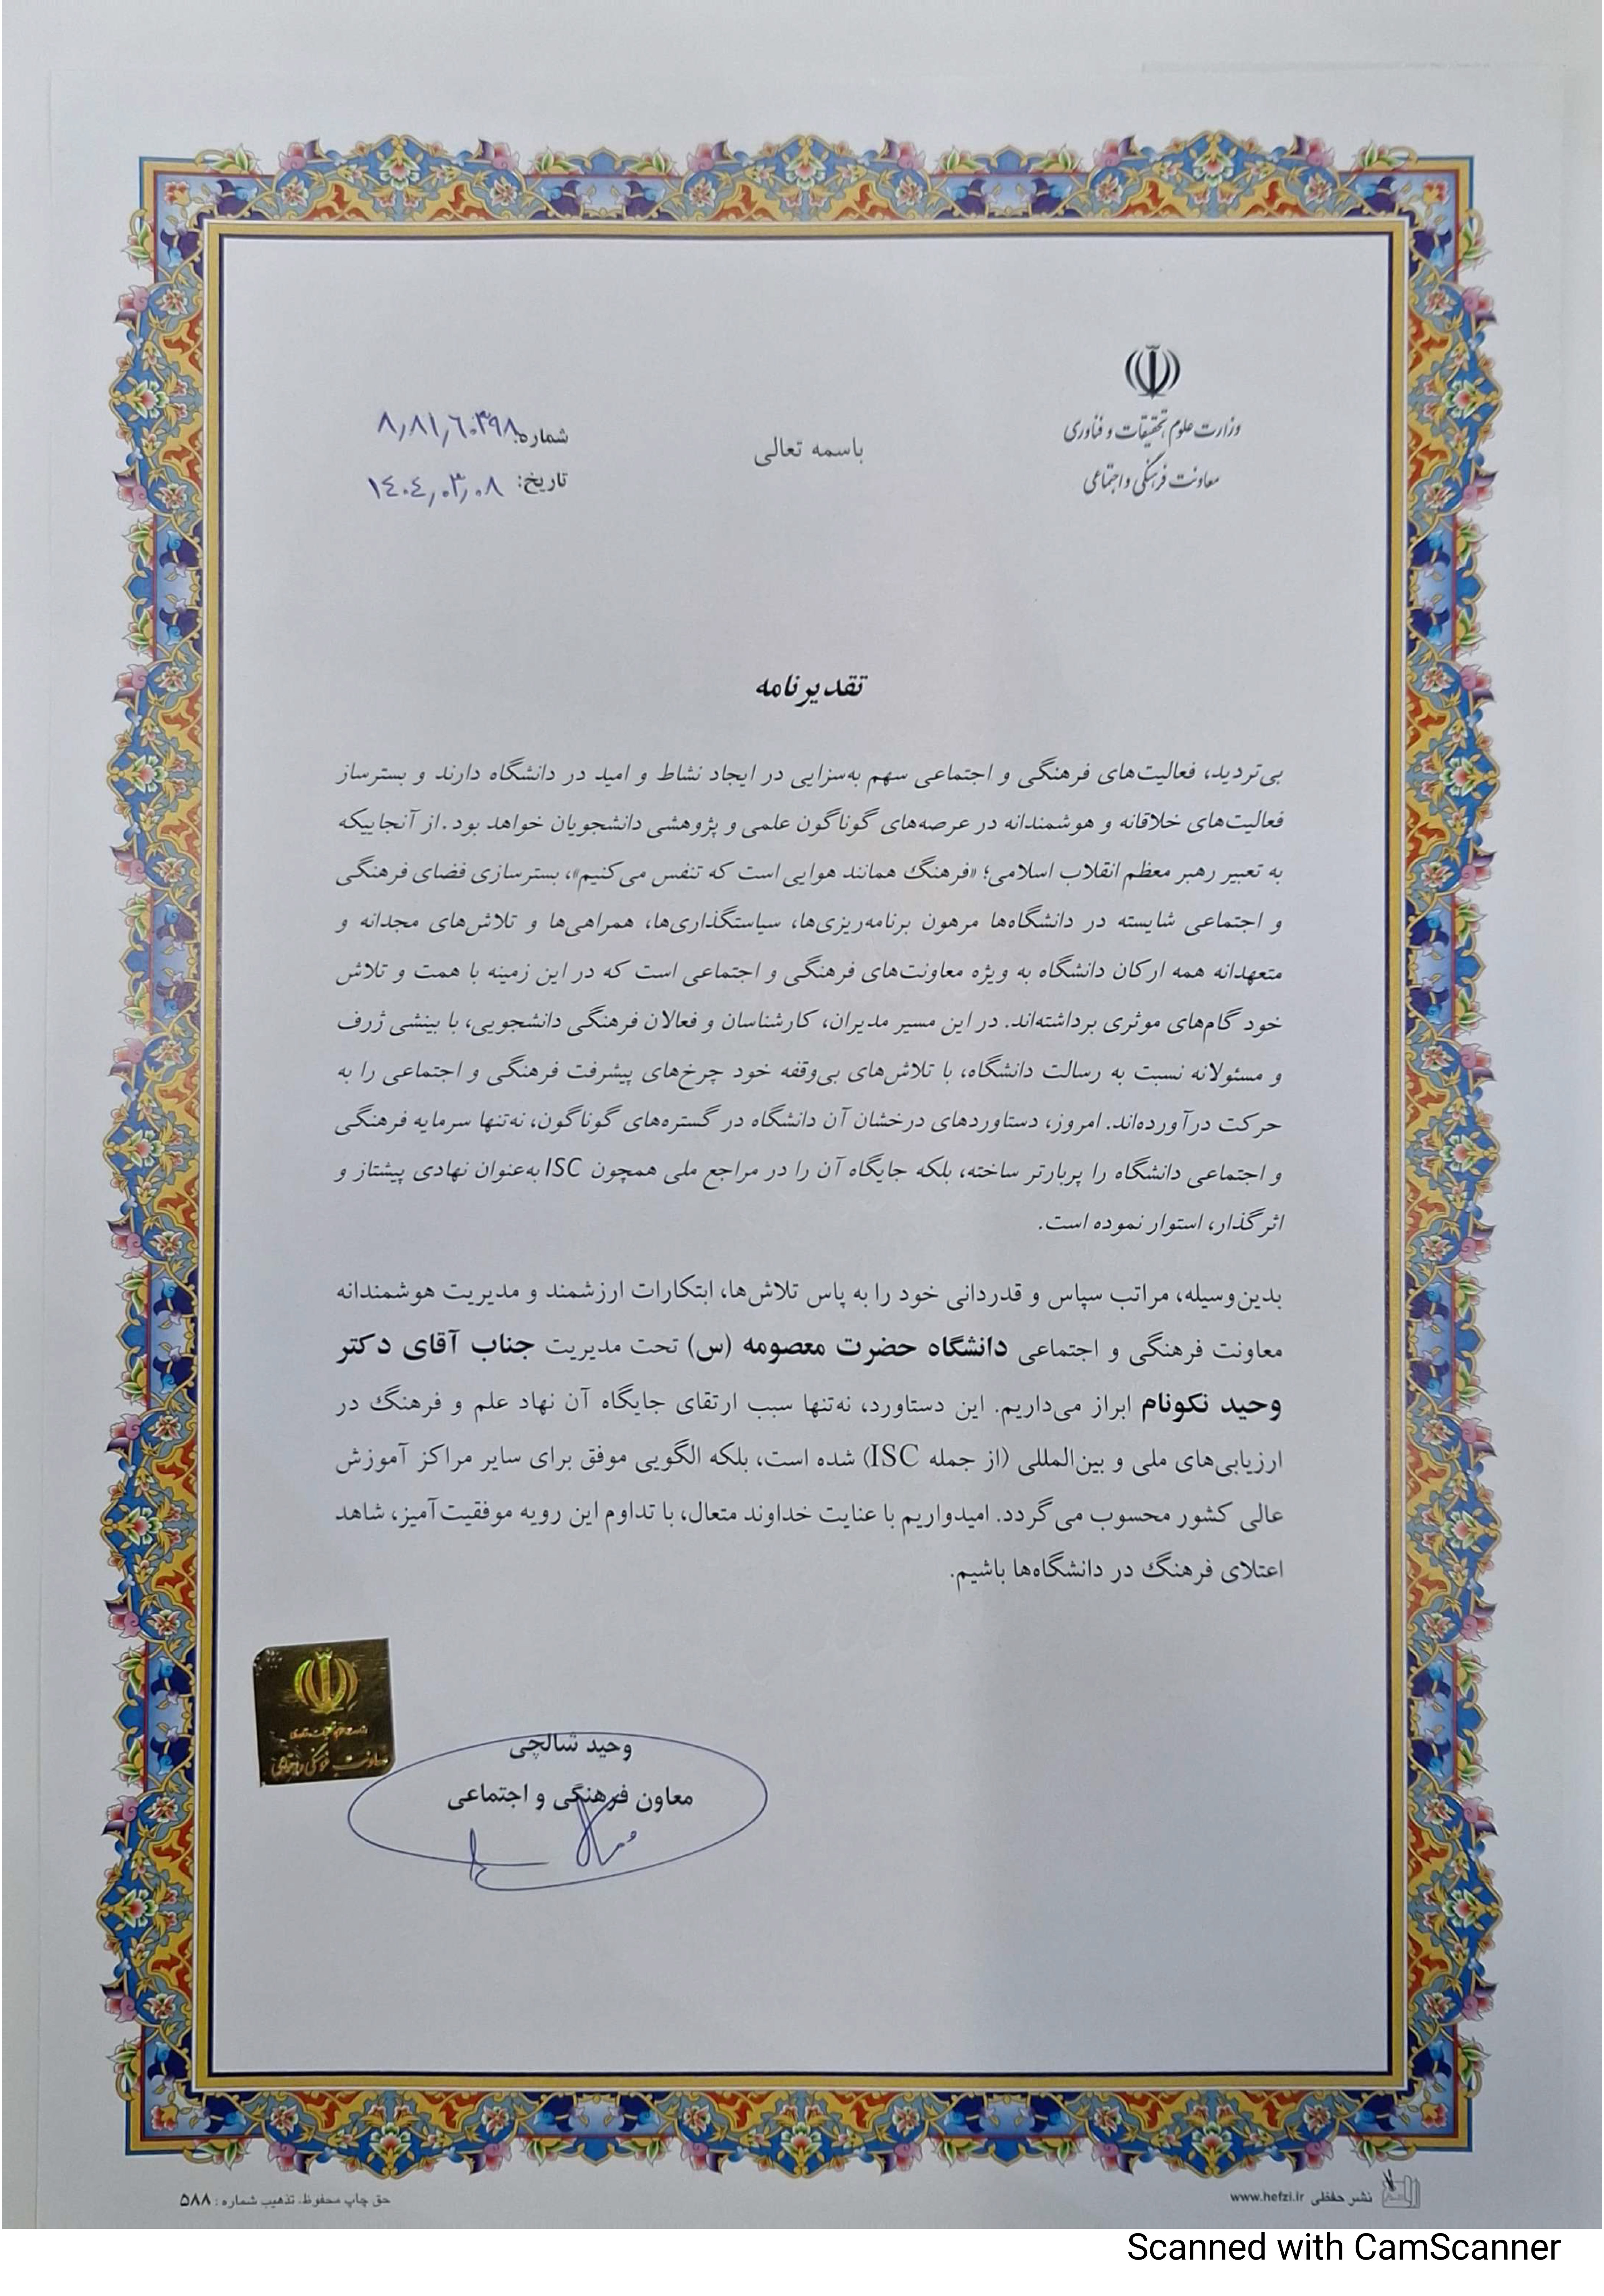 وزارت علوم تحقیقات و فناوری
معاونت فرهنگی و اجتماعی
باسمه تعالی
شماره: ۸٫۸۱٫۶۰۳۹۸
تاریخ: ۱۴۰۴٫۰۳٫۰۸
تقدیرنامه
بی‌تردید، فعالیت‌های فرهنگی و اجتماعی سهم به‌سزایی در ایجاد نشاط و امید در دانشگاه دارند و بسترساز
فعالیت‌های خلاقانه و هوشمندانه در عرصه‌های گوناگون علمی و پژوهشی دانشجویان خواهد بود. از آنجاییکه
به تعبیر رهبر معظم انقلاب اسلامی؛ «فرهنگ همانند هوایی است که تنفس می‌کنیم»، بسترسازی فضای فرهنگی
و اجتماعی شایسته در دانشگاه‌ها مرهون برنامه‌ریزی‌ها، سیاستگذاری‌ها، همراهی‌ها و تلاش‌های مجدانه و
متعهدانه همه ارکان دانشگاه به ویژه معاونت‌های فرهنگی و اجتماعی است که در این زمینه با همت و تلاش
خود گام‌های موثری برداشته‌اند. در این مسیر مدیران، کارشناسان و فعالان فرهنگی دانشجویی، با بینشی ژرف
و مسئولانه نسبت به رسالت دانشگاه، با تلاش‌های بی‌وقفه خود چرخ‌های پیشرفت فرهنگی و اجتماعی را به
حرکت درآورده‌اند. امروز، دستاوردهای درخشان آن دانشگاه در گستره‌های گوناگون، نه‌تنها سرمایه فرهنگی
و اجتماعی دانشگاه را پربارتر ساخته، بلکه جایگاه آن را در مراجع ملی همچون ISC به‌عنوان نهادی پیشتاز و
اثرگذار، استوار نموده است.
بدین‌وسیله، مراتب سپاس و قدردانی خود را به پاس تلاش‌ها، ابتکارات ارزشمند و مدیریت هوشمندانه
معاونت فرهنگی و اجتماعی دانشگاه حضرت معصومه (س) تحت مدیریت جناب آقای دکتر
وحید نکونام ابراز می‌داریم. این دستاورد، نه‌تنها سبب ارتقای جایگاه آن نهاد علم و فرهنگ در
ارزیابی‌های ملی و بین‌المللی (از جمله ISC) شده است، بلکه الگویی موفق برای سایر مراکز آموزش
عالی کشور محسوب می‌گردد. امیدواریم با عنایت خداوند متعال، با تداوم این رویه موفقیت‌آمیز، شاهد
اعتلای فرهنگ در دانشگاه‌ها باشیم.
معاونت فرهنگی و اجتماعی
وحید شالچی
معاون فرهنگی و اجتماعی
نشر حفظی www.hefzi.ir
حق چاپ محفوظ. تذهیب شماره: ۵۸۸
Scanned with CamScanner